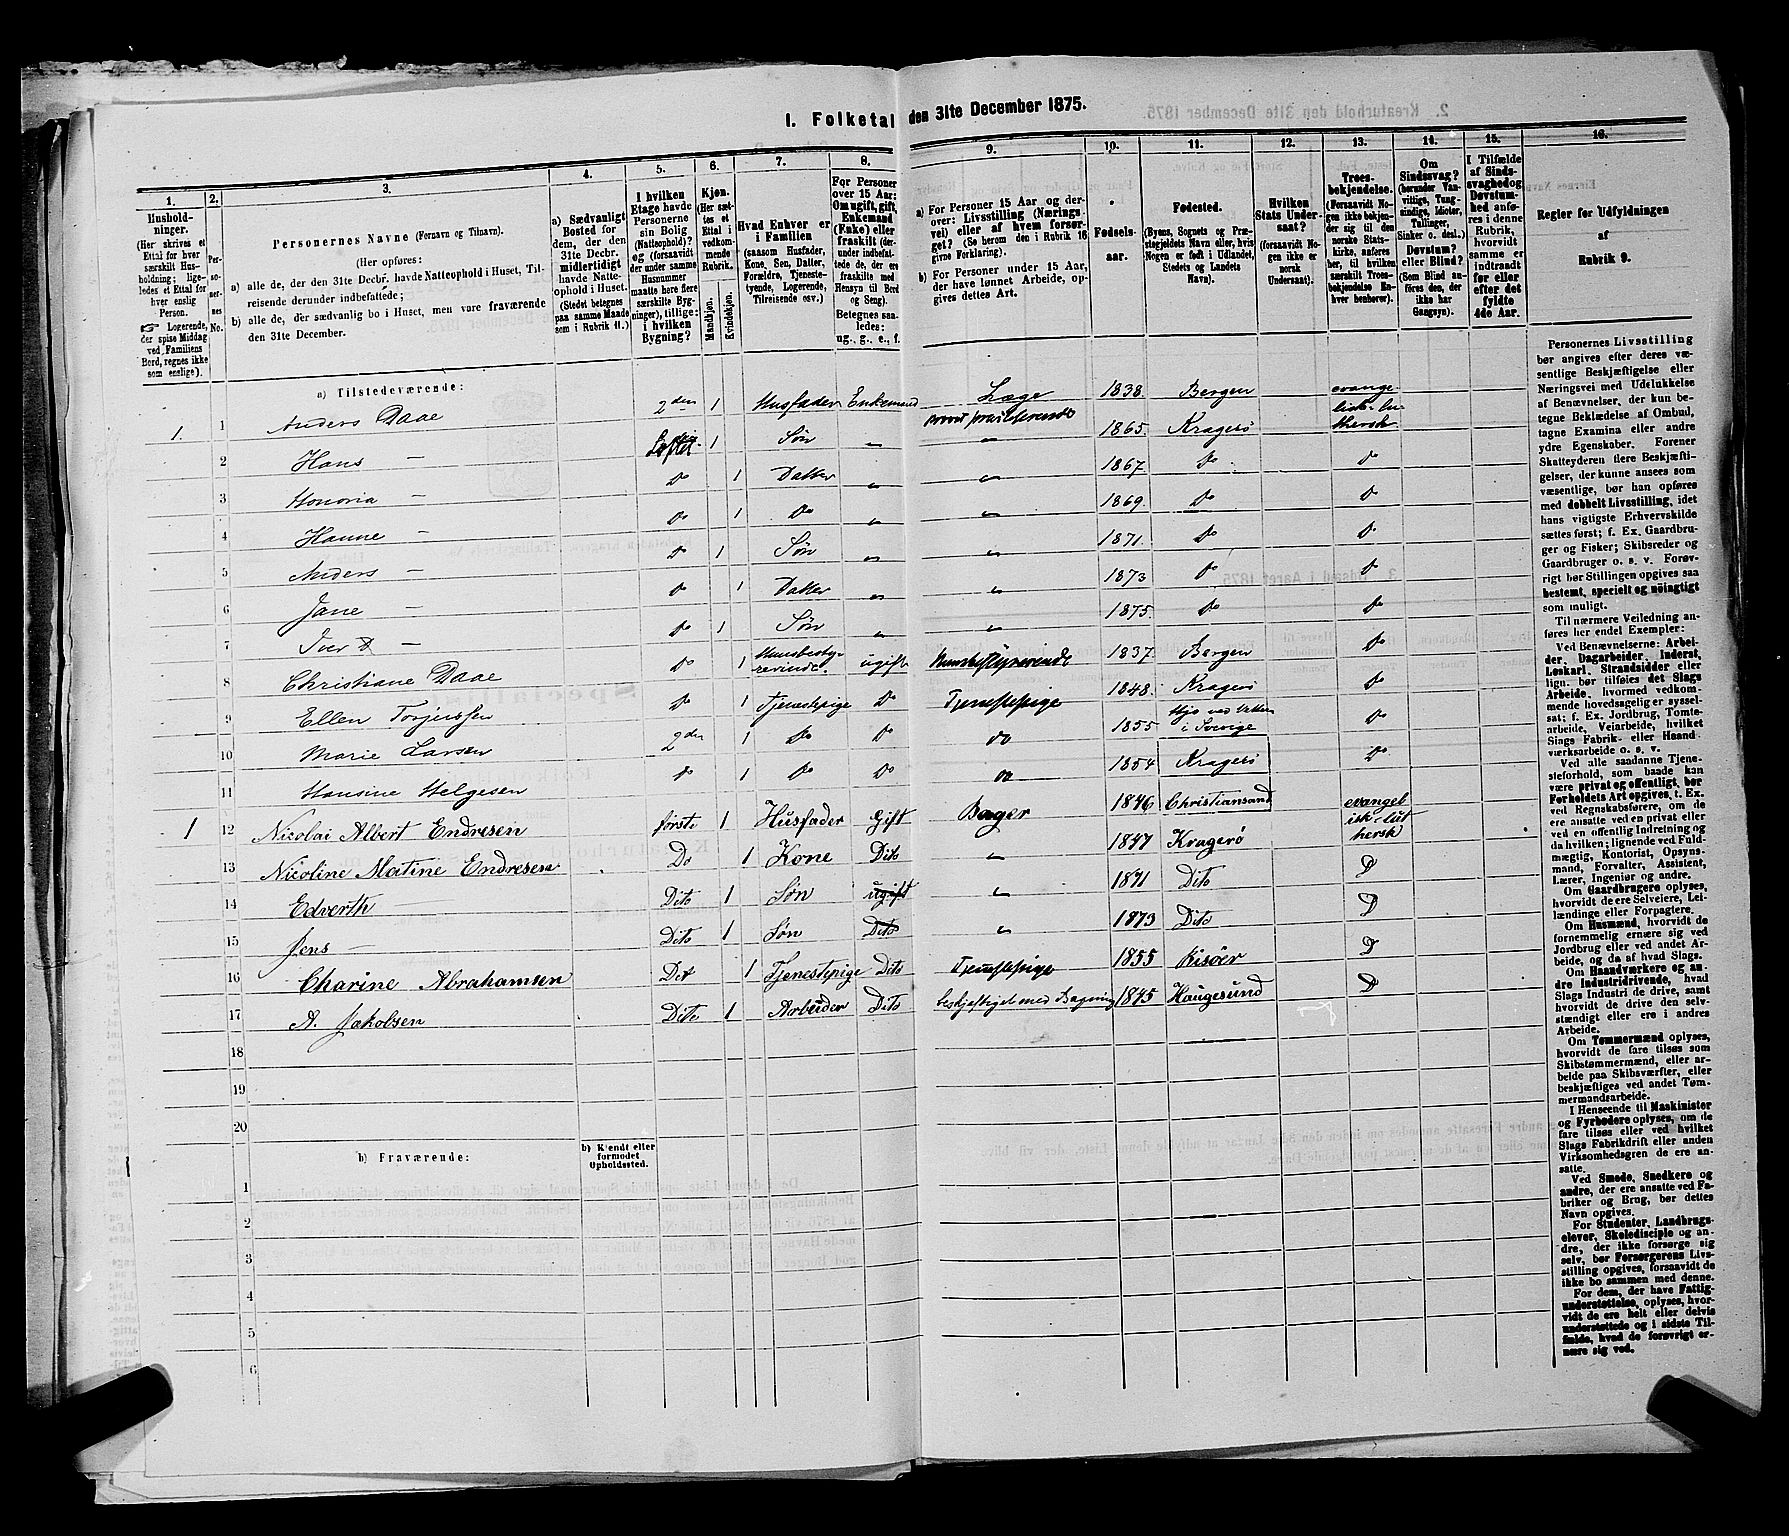 I. Folketal den 31te December 1875.
1. Husholdninger. (Her skrives et Ettal for hver særskilt Husholdning; ligeledes et Ettal for hver enslig Person. ☞ Logerende, der spise Middag ved Familiens Bord, regnes ikke som enslige).
2. Personernes No.
3. Personernes Navne (Fornavn og Tilnavn).
(Her opføres:
a) alle de, der den 31te Decbr. havde Natteophold i Huset, Tilreisende derunder indbefattede;
b) alle de, der sædvanlig bo i Huset, men vare fraværende den 31te December.
4. a) Sædvanligt Bosted for dem, der den 31te Decbr. midlertidigt havde Natteophold i Huset. (Stedet betegnes paa samme Maade som i Rubrik 11.)
5. I hvilken Etage havde Personerne sin Bolig (Natteophold)? og (forsaavidt der under samme Husnummer maatte høre flere særskilte Bygninger), tillige: i hvilken Bygning?
6. Kjøn. (Her sættes et Ettal i vedkommende Rubrik. Mandkjøn. Kvindekjøn.
7. Hvad Enhver er i Familien (saasom Husfader, Kone, Søn, Datter, Forældre, Tjenestetyende, Logerende, Tilreisende osv.)
8. For Personer over 15 Aar: Om ugift, gift, Enkemand (Enke) eller fraskilt (derundefattede de, der ere fraskilte med Hensyn til Bord og Seng). Betegnes saaledes: ug., g., e., f.
9. a) For Personer 15 Aar og derover: Livsstilling (Næringsvei) eller af hvem forsørget? (Se herom den i Rubrik 16 givne Forklaring).
b) For Personer under 15 Aar, der have lønnet Arbeide, opgives dettes Art.
10. Fødselsaar.
11. Fødested. (Byens, Sognets og Præstegjeldets Navn eller, hvis Nogen er født i Udlandet, Stedets og Landets Navn).
12. Hvilken Stats Undersaat? (forsaavidt Nogen ikke er norsk Undersaat).
13. Troesbekjendelse. (Forsaavidt Nogen ikke bekjender sig til den norske Statskirke, anføres her, til hvilken særskilt Troesbekjendelse Enhver henhører).
14. Om Sindssvag? (herunder Vanvittige, Tungsindige, Idioter, Tullinger, Sinker o. desl.) Døvstum? eller Blind? (Som Blind anføres den, der ikke har Gangsyn).
15. I Tilfælde af Sindssvaghed og Døvstumhed anføres i denne Rubrik, hvorvidt samme er indtraadt før eller efter det fyldte 4de Aar.
16. Regler for Udfyldningen af Rubrik 9.
a) Tilstedeværende:
1. 1 Anders Daae 2den 1 Husfader Enkemand Læge 1838. Bergen evange
2 Hans — 1 Søn 1865. Kragerø
3 Honoria — Do 1 Datter 1867. Do Do
4 Hanne — Do 1 Do 1869. Do Do
5 Anders — Do 1 Søn 1871. Do Do
6 Jane — Do 1 Datter 1873 Do Do
7 Iver — Do 1 Søn 1875. Do Do
8 Christiane Daae Do 1 Huusbestyrerinde. ugift Huusbestyrerinde 1837. Bergen Do
9 Ellen Torjussen Do 1 Tjenestepige Do Tjenestepige 1848. Kragerø Do
10 Marie Larsen 2den 1 Do Do do 1855 i Sverige Do
11 Hansine Helgesen Do 1 Do Do do 1854 Kragerø Do
1 12 Nicolai Albert Endresen første 1 Husfader Gift Bager 1846 Christiansand evangelisk-luthersk
13 Nicoline Matine Endresen Do 1 Kone Dito 1847 Kragerø
14 Edverth — Dito 1 Søn ugift 1871 Dito D
15 Jens — Dito 1 Søn Dito 1873 Dito D
16 Charine Abrahamsen Dit 1 Tjenestepige Dito Tjenestepige 1855 Risöer D
17 A. Jakobsen Dito 1 Arbeider Dito beskjeftiget med Bagning 1845 Haugesund D
18
19
20
b) Fraværende:
b) Kjendt eller formodet Opholdssted.
1
2
3
4
5
6
Personernes Livsstilling
bør angives efter deres væ-
sentlige Beskjæftigelse eller
Næringsvei med Udelukkelse
af Benævnelser, der kun be-
tegne Beklædelse af Ombud,
tagne Examina eller andre
ydre Egenskaber. Forener
Skatteyderen flere Beskjæfti-
gelser, der kunne ansees som
væsentlige, bør han opføres
med dobbelt Livsstilling, idet
hans vigtigste Erhvervskilde
sættes først; f. Ex. Gaardbru-
ger og Fisker; Skibsreder og
Gaardbruger o. s. v. Forøv-
rigt bør Stillingen opgives saa
bestemt, specielt og nöiagtigt
som muligt.
Til nærmere Veiledning an-
føres her endel Exempler:
Ved Benævnelserne: Arbei-
der, Dagarbeider, Inderst,
Løskarl, Strandsidder eller
lign. bør tilføies det Slags
Arbeide, hvormed vedkom-
mende hovedsagelig er syssel-
sat; f. Ex. Jordbrug, Tomte-
arbeide, Veiarbeide, hvilket
Slags Fabrik- eller Haand-
værksarbeide o. s. v.
Ved alle saadanne Tjene-
steforhold, som baade kan
være privat og offentligt, bør
Forholdets Art opgives, t. Ex.
ved Regnskabsførere, om de
ere ansatte ved en privat eller
ved en offentlig Indretning og
da hvilken; lignende ved Fuld-
mægtig, Kontorist, Opsyns-
mand, Forvalter, Assistent,
Lærer, Ingeniør og andre.
Om Gaardbrugere oplyses,
hvorvidt de ere Selveiere, Lei-
lændinge eller Forpagtere.
Om Husmænd, hvorvidt de
fornemmelig ernære sig ved
Jordbrug eller ved andet Ar-
beide, og da af hvad Slags.
Om Haandværkere og an-
dre Industridrivende, hvad
Slags Industri de drive, samt
hvorvidt de drive den selv-
stændigt eller ere i andres
Arbeide.
Om Tømmermænd oplyses,
hvorvidt de fare tilsøs som
Skibstømmermænd, eller ar-
beide paa Skibsværfter, eller
beskjæftiges ved andet Tøm-
mermandsarbeide.
I Henseende til Maskinister
og Fyrbødere oplyses, om de
fare tilsøs eller ved hvilket
Slags Fabrikdrift eller anden
Virksomhedsgren de ere an-
satte.
Ved Smede, Snedkere og
andre, der ere ansatte ved Fa-
briker og Brug, bør dettes
Navn opgives.
For Studenter, Landbrugs-
elever, Skoledisciple og an-
dre, der ikke forsørge sig
selv, bør Forsørgerens Livs-
stilling opgives, forsaavidt de
ikke bo sammen med denne.
For dem, der have Fattig-
understøttelse, oplyses, hvor-
vidt de ere helt eller delvis
understøttede og i sidste Til-
fælde, hvad de forøvrigt er-
nære sig ved.